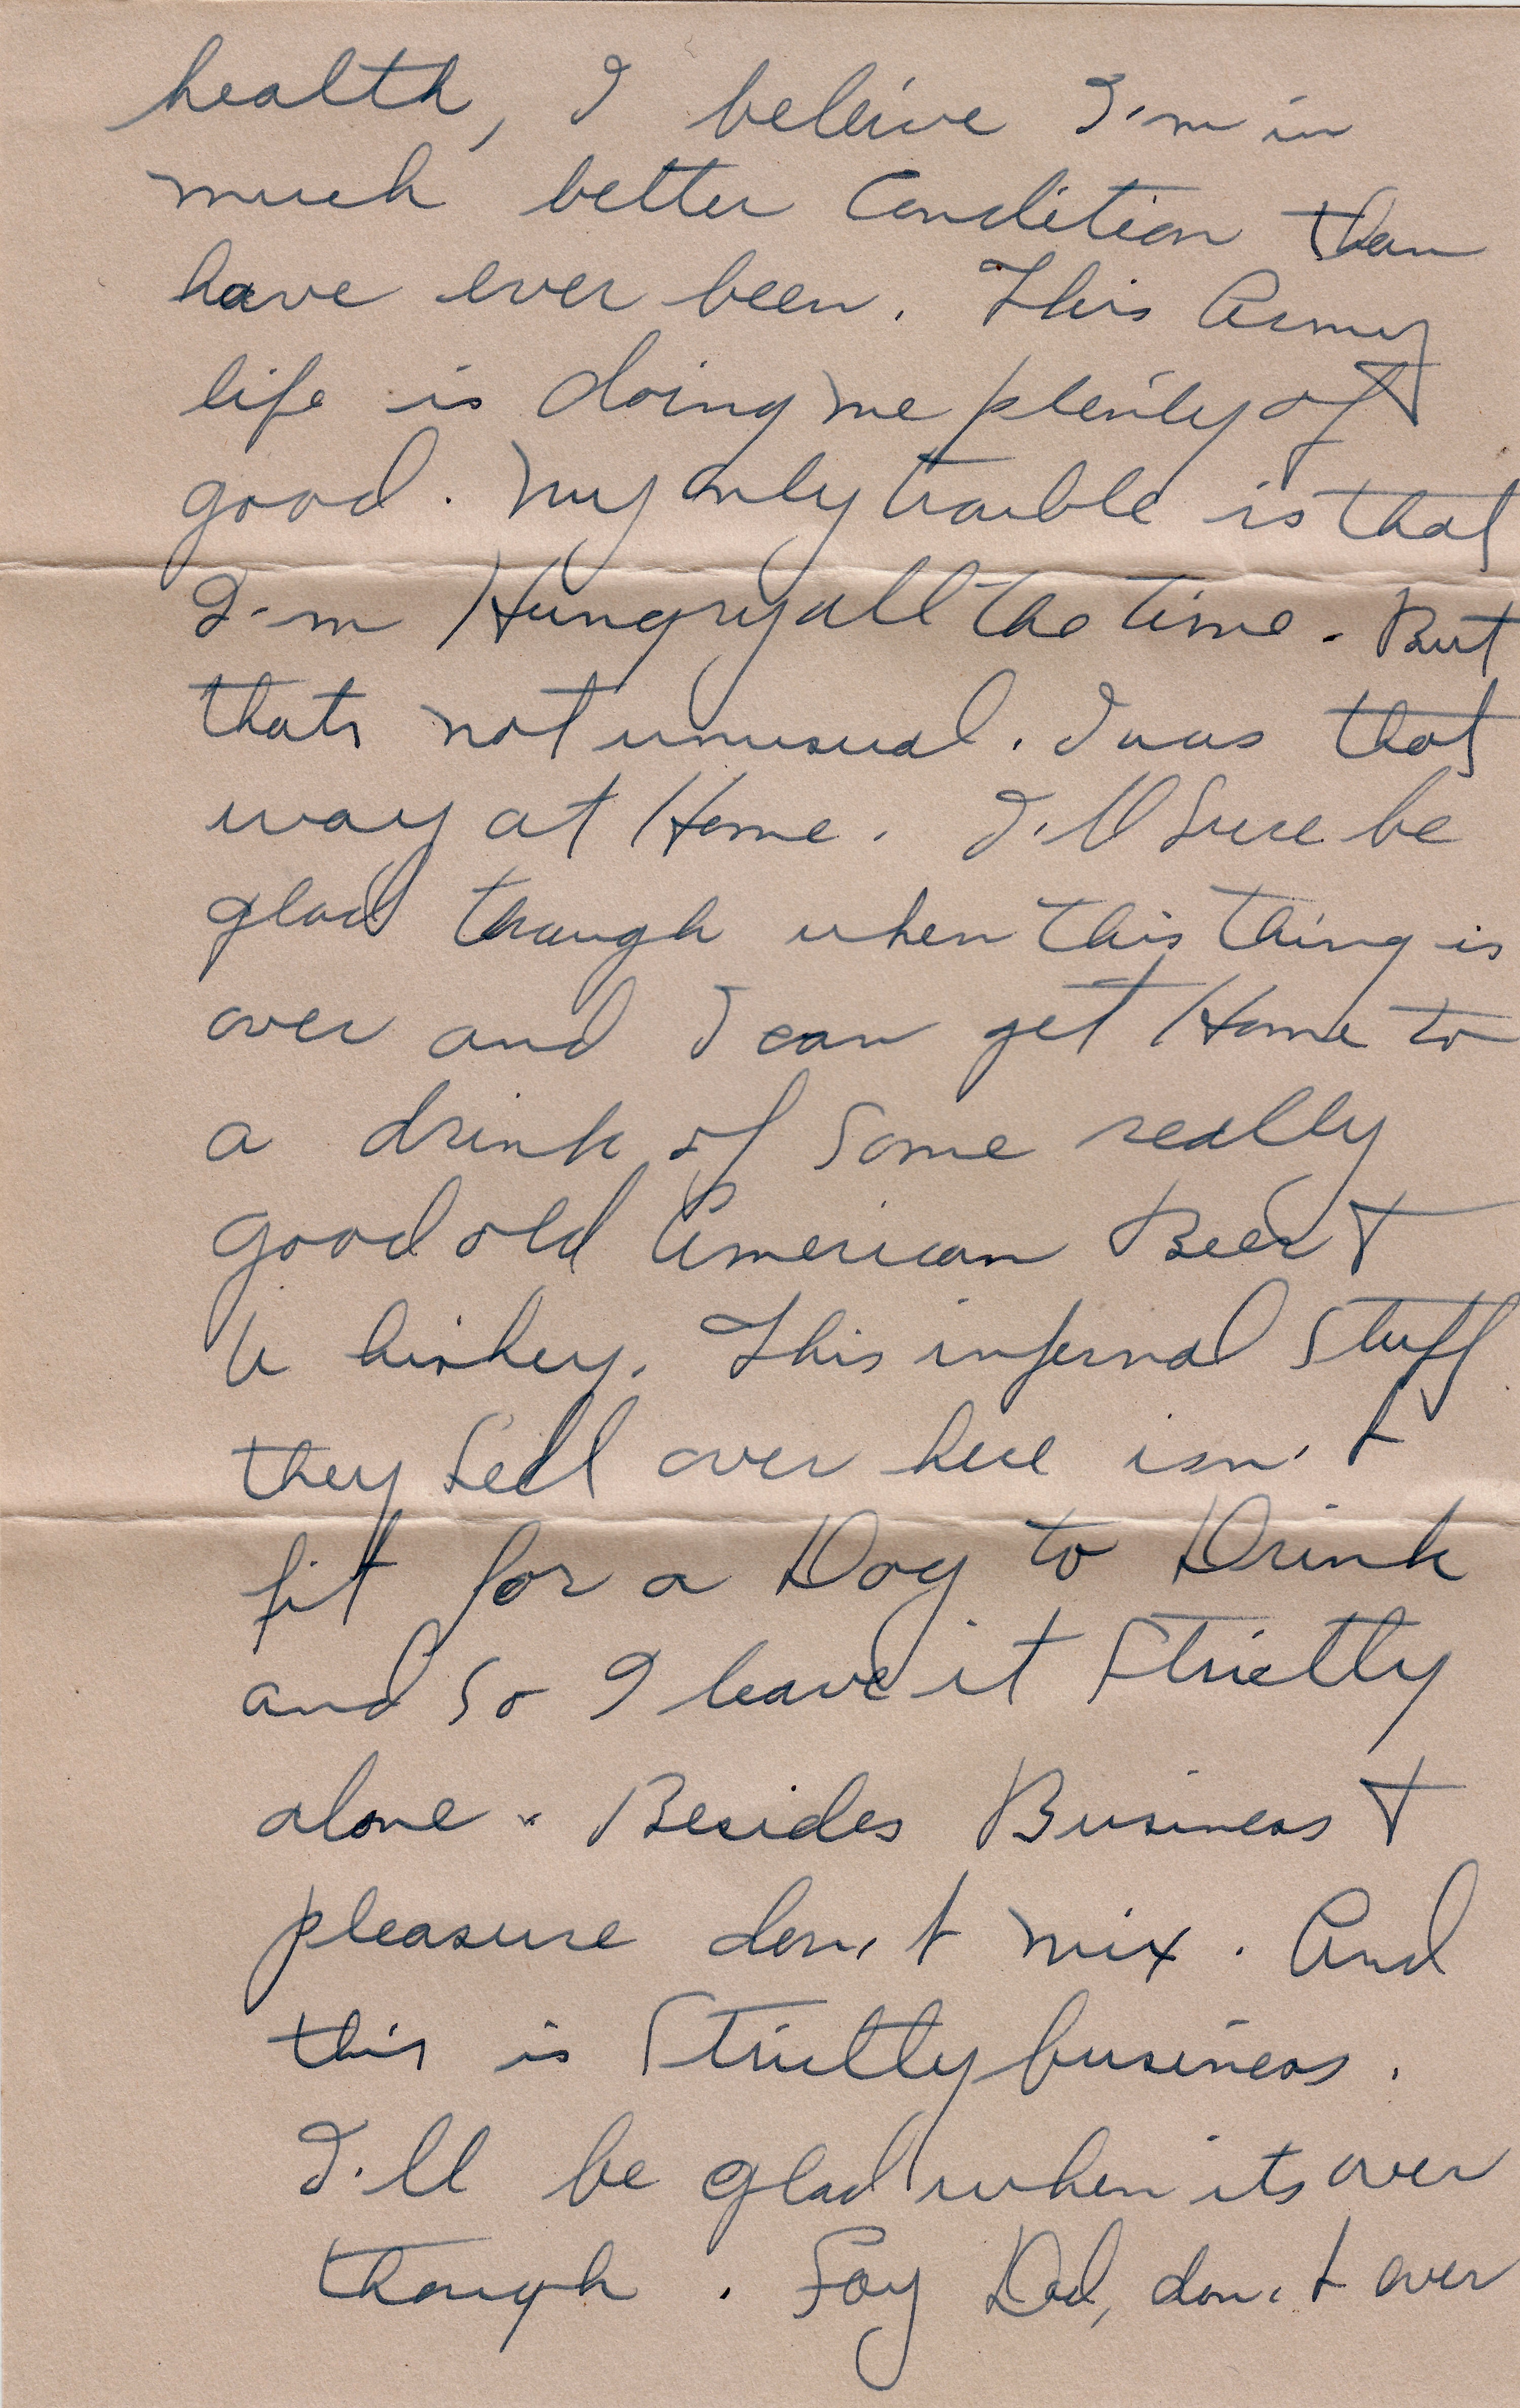 health, I beleive I'm in
much better Condition than
have ever been. This Army
life is doing me plenty of
good. My only trouble is that
I'm Hungry all the time. But
thats not unusual. I was that
way at Home. I'll Sure be
glad though when this thing is
over and I can get Home to
a drink of Some really
good old American Beer +
Whiskey. This infernal Stuff
they Sell over here isn't
fit for a Dog to Drink
and So I leave it Strictly
alone. Besides Business +
pleasure don't mix. And
this is Strictly business.
I'll be glad when its over
though. Say Dad, don't ever